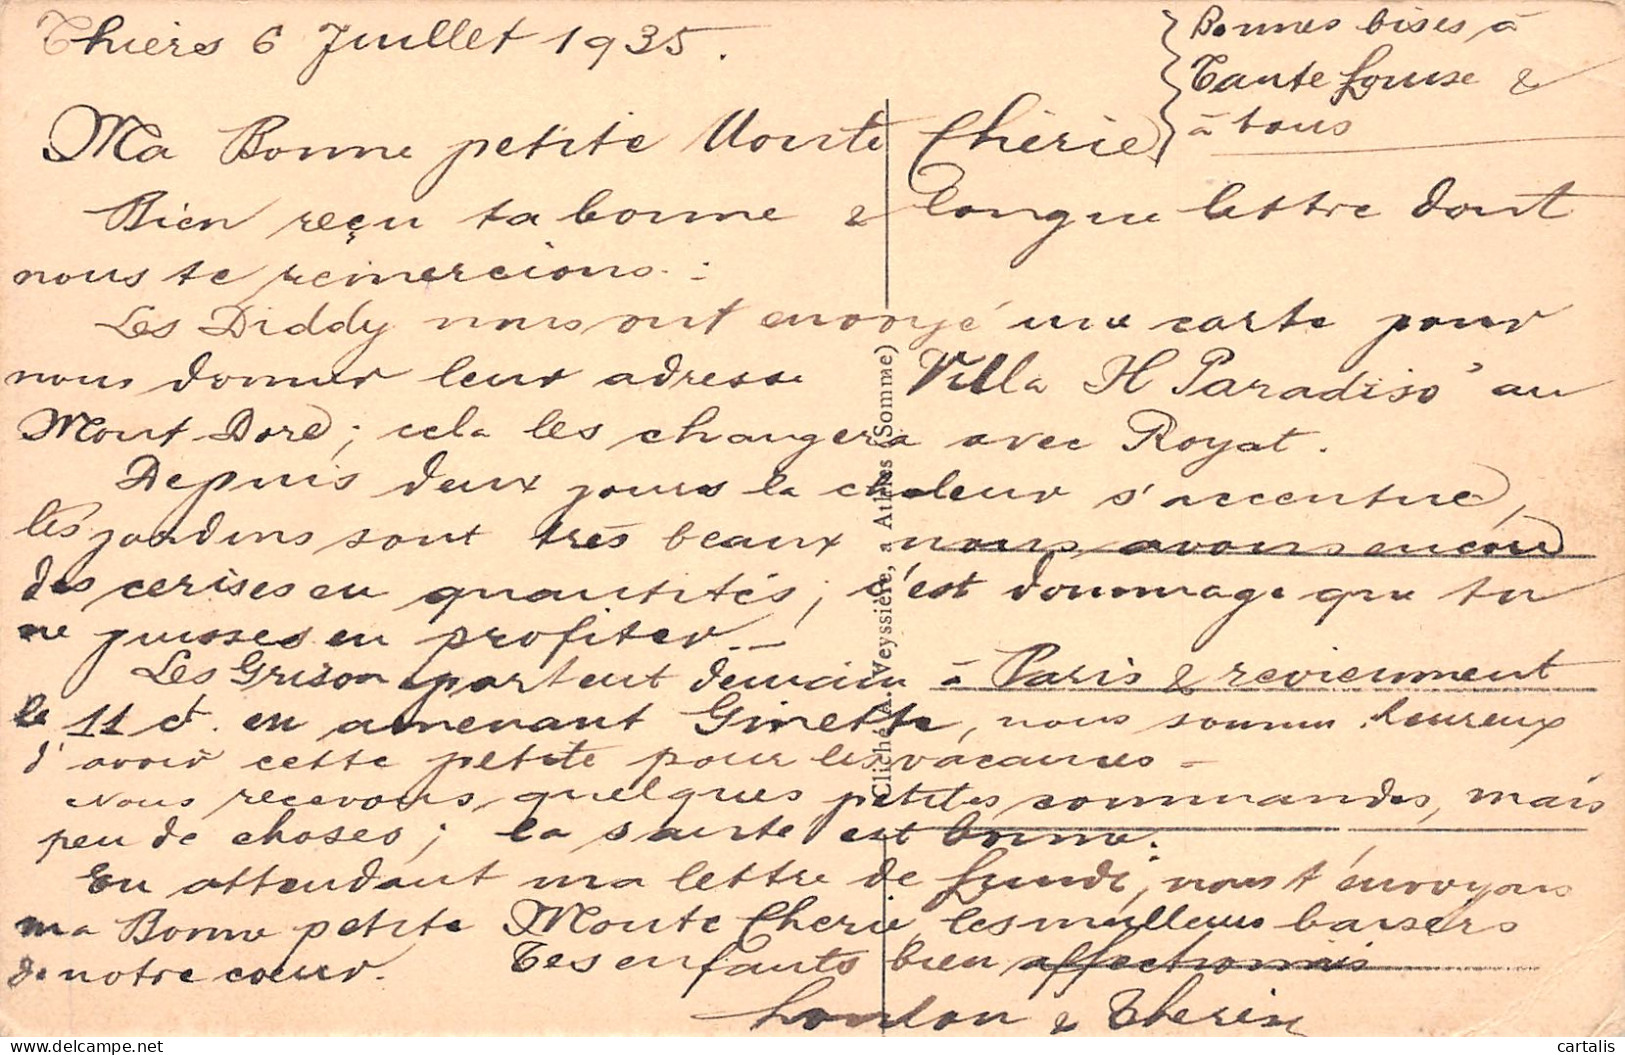 Thiers 6 Juillet 1935.
Bonnes bises à
Tante Louise &
à tous
Ma Bonne petite Monte Chérie
Bien reçu ta bonne & longue lettre dont
nous te remercions.
Les Diddy nous ont envoyé une carte pour
nous donner leur adresse Villa Il Paradiso au
Mont Dore; cela les changera avec Royat.
Depuis deux jours la chaleur s'accentue,
les jardins sont très beaux nous avons encore
des cerises en quantités; c'est dommage que tu
ne puisses en profiter.
Les Grison partent demain à Paris & reviennent
le 11 ct. en amenant Ginette, nous sommes heureux
d'avoir cette petite pour les vacances -
Nous recevons quelques petites commandes, mais
peu de choses; la sante est bonne.
En attendant ma lettre de Lundi, nous t'envoyons
ma Bonne petite Monte Cherie, les meilleurs baisers
de notre coeur. Tes enfants bien affectionnés
&
Cliché A. Veyssière, a Athies (Somme)
cartalis
delcampe.net